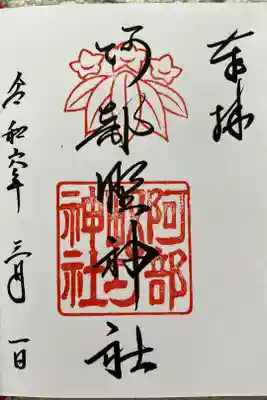 奉拝
阿部野神社
令和六年 三月 一日
阿部野神社